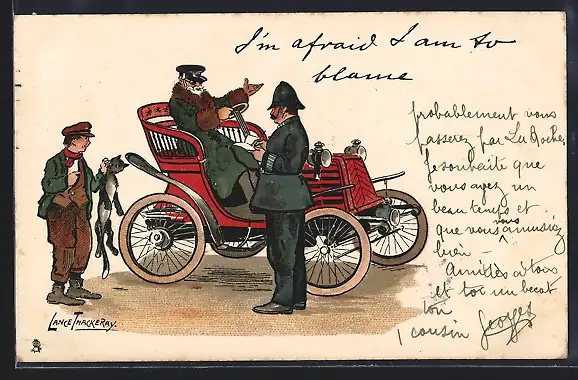 I'm afraid I am to
blame
probablement vous
passerez par La Roche,
Je souhaite que
vous ayez un
beau temps et
que vous vous amusiez
bien
Amitiés à tous
et toi un
ton
cousin Georges
LANCE THACKERAY.